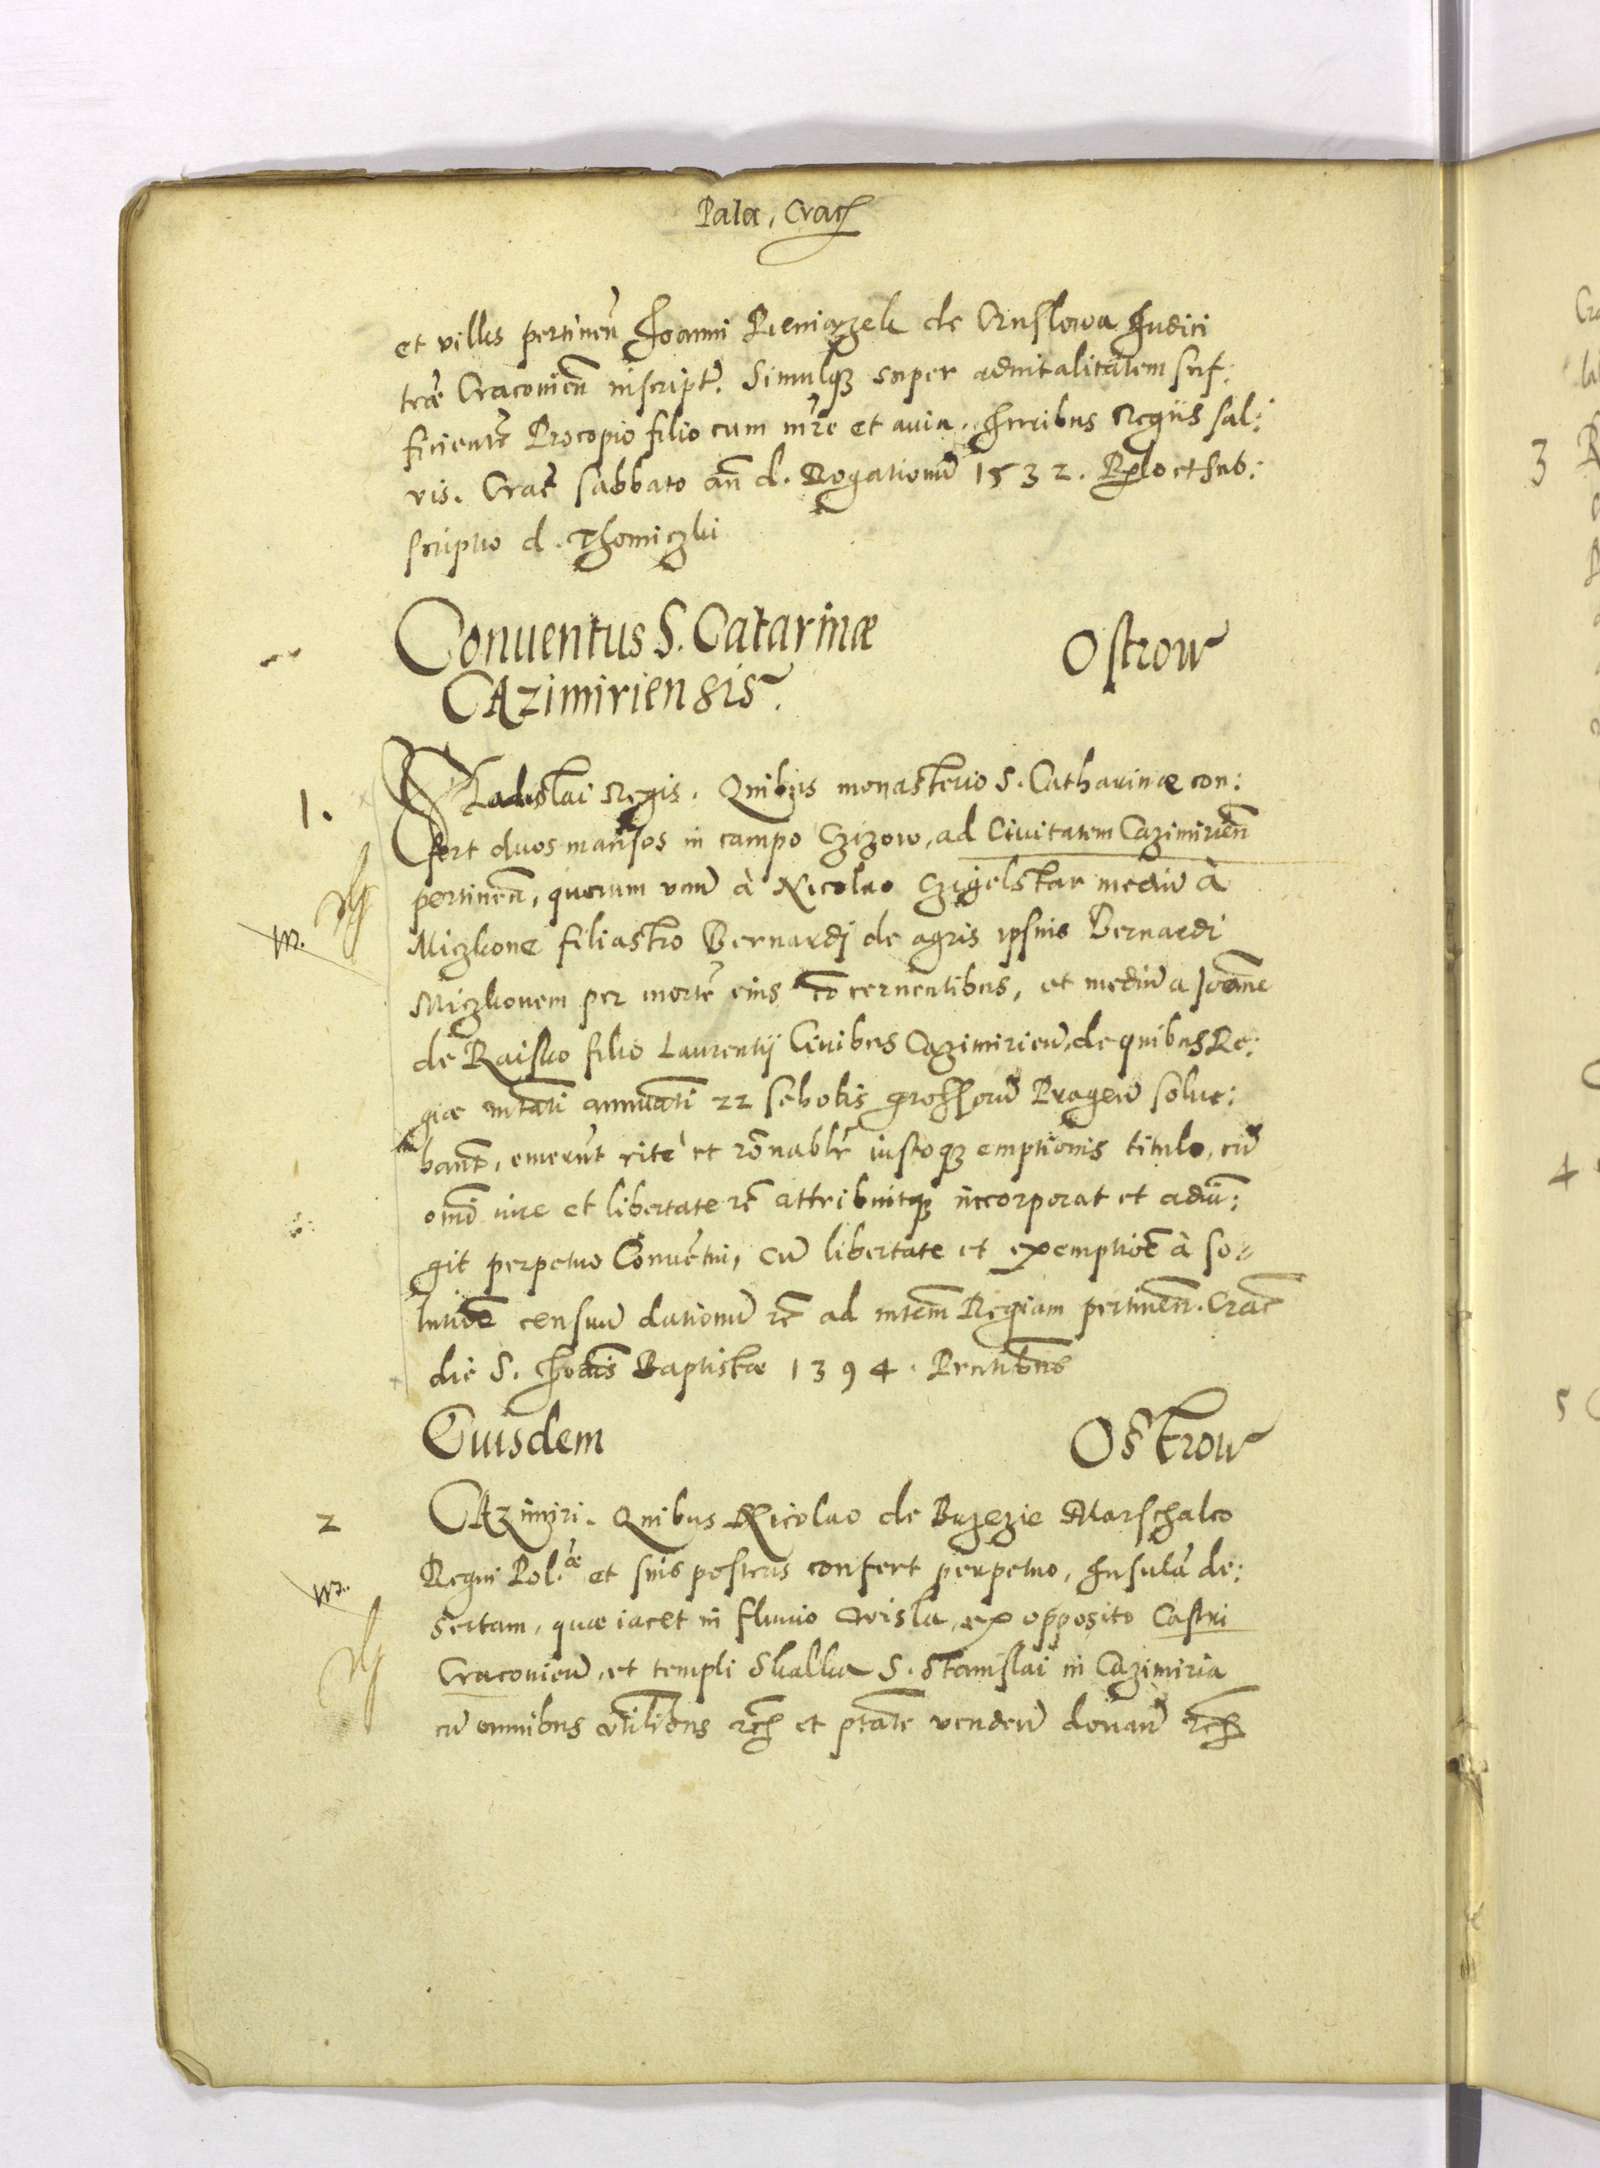 Pala. Crac
et villis pertinen Joanni Pieniązek de Cruslowa Judici
træ Cracovien inscript. Simulq super advitalitatem suf:
ficiente Procopio filio cum mre et avia. Juribus Regiis sal:
vis. Crac sabbato an d. Rogationu 1532. Rlo et sub:
scriptio d. Thomiczki
Conventus S. Catarinæ
Ostrow
CAzimiriensis.
1.
Vladislai Regis. Quibus monasterio S. Catharinæ con:
fert duos mansos in campo Czizow, ad Civitatem Cazimirien
pertinen, quorum unu à Nicolao Czigelstar mediu à
Miczkone filiastro Bernardi de agris ipsius Bernardi
Miczkonem per morte eius concernentibus, et mediu a Joanne
de Raisko filio Laurentij Civibus Cazimirien, de quibus Re:
giæ mtati annuati 22 schotis grossoru Pragen solve:
bant, emerut ritè et ronablr iustoq emptionis titulo, cu
omi iure et libertate rc attribuitq incorporat et adiu:
git perpetuo Conuetui, cu libertate et exemptioe à so=
lutioe censuu dationu rc ad mtem Regiam pertinen. Crac
die S. Joanis Baptistæ 1394. Pntibus
Eiusdem
Ostrow
2
CAzimiri. Quibus Nicolao de Bzezie Marschalco
Regni Pol.æ et suis posteris confert perpetuo, Insula de:
sertam, quæ iacet in fluvio Wisla, ex opposito Castri
Cracovien, et templi Skalka S. Stanislai in Cazimiria
cu omnibus utilibus rc et ptate venden donan rc
3
4
5